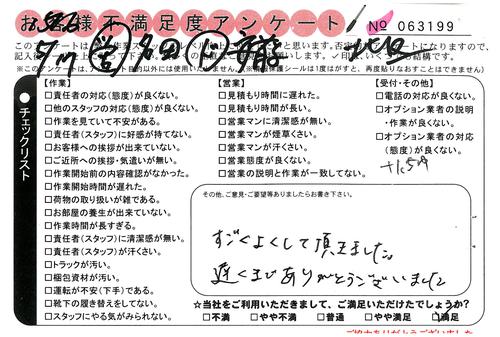 お客様不満足度アンケート
No 063199
【作業】
□責任者の対応(態度)が良くない。
□他のスタッフの対応(態度)が良くない。
□作業を見ていて不安がある。
□責任者(スタッフ)に好感が持てない。
□お客様への挨拶が出来ていない。
□ご近所への挨拶・気遣いが無い。
□作業開始前の内容確認がなかった。
□作業開始時間が遅れた。
□荷物の取り扱いが雑である。
□お部屋の養生が出来ていない。
□作業時間が長すぎる。
□責任者(スタッフ)に清潔感が無い。
□責任者(スタッフ)が汗くさい。
□トラックが汚い。
□梱包資材が汚い。
□運転が不安(下手)である。
□靴下の履き替えをしてない。
□スタッフにやる気がみられない。
【営業】
□見積もり時間に遅れた。
□見積もり時間が長い。
□営業マンに清潔感が無い。
□営業マンが煙草くさい。
□営業マンが汗くさい。
□営業態度が良くない。
□営業の説明と作業が一致してない。
【受付・その他】
□電話の対応が良くない。
□オプション業者の説明
・作業が良くない。
□オプション業者の対応
(態度)が良くない。
●チェックリスト
その他、ご意見・ご要望等ありましたらお書き下さい。
すごくよくして頂きました。
遅くまでありがとうございました
☆当社をご利用いただきまして、ご満足いただけたでしょうか?
□不満 □やや不満 □普通 □やや満足 □満足
ご協力ありがとうございました